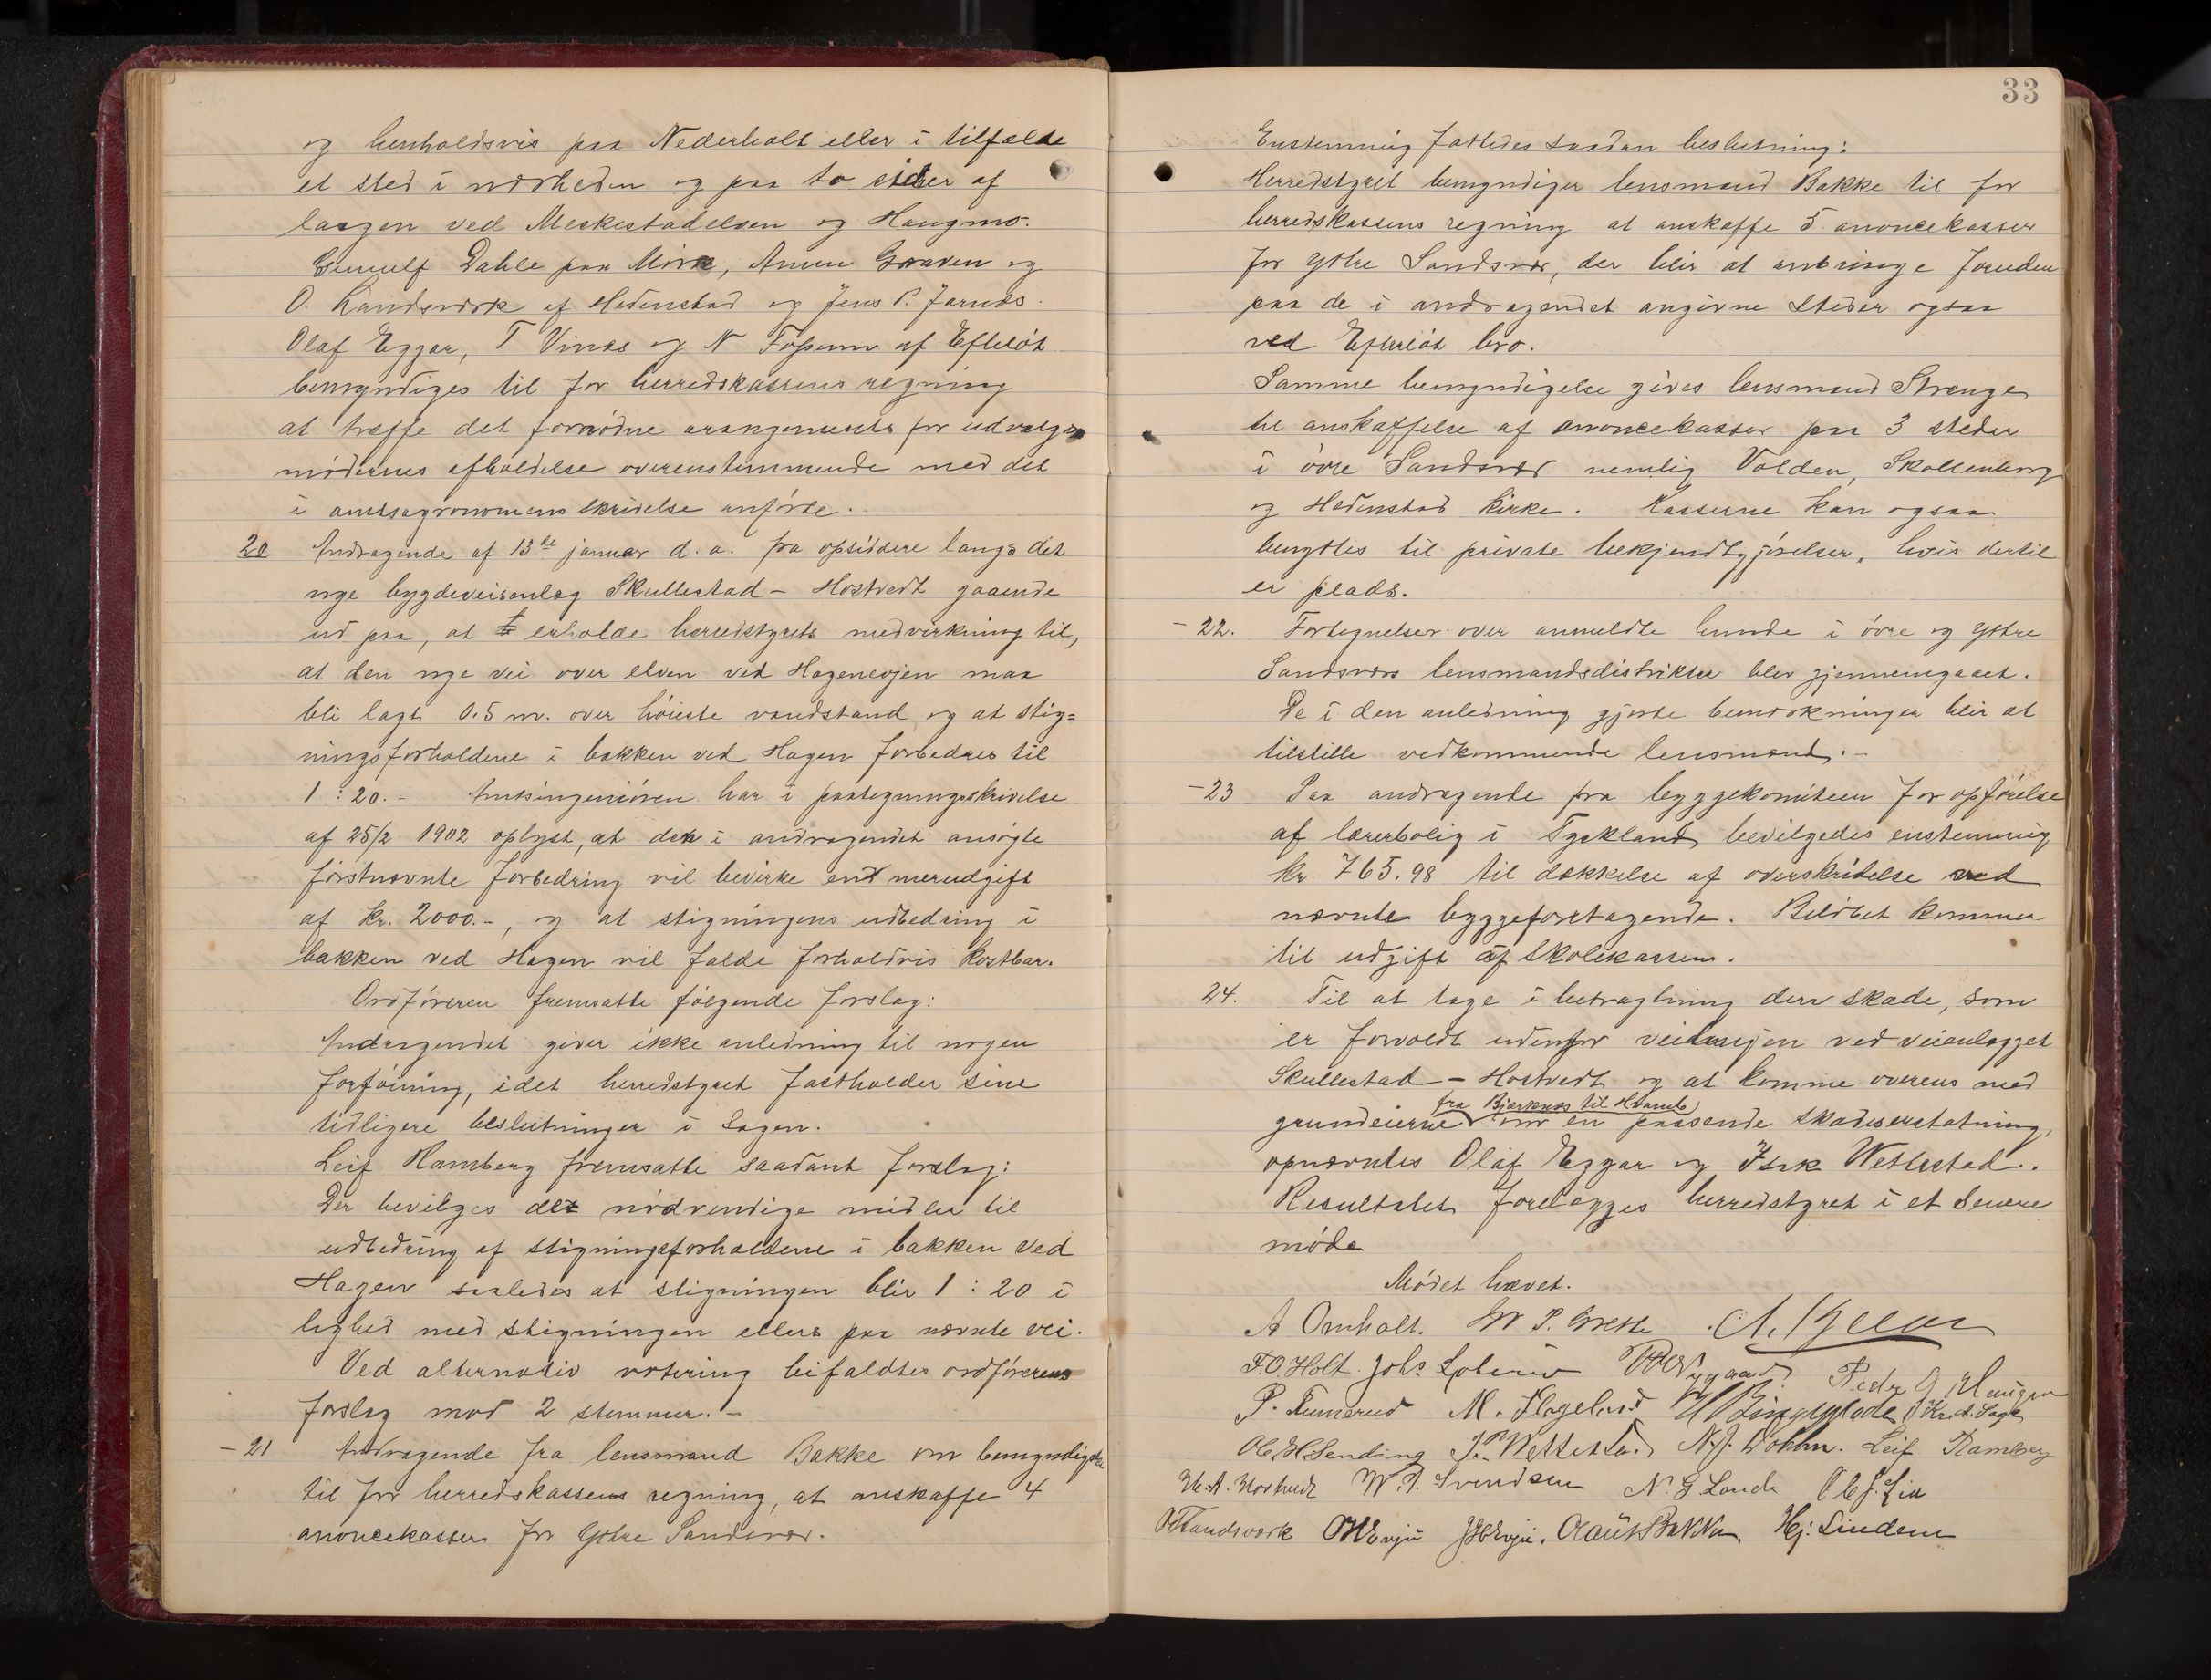 og henholdsvis paa Nederholt eller i tilfælde
et sted i nærheden og paa to sider af
laagen ved Meskestadelven og Haugmo.
Dahle paa Moræ, Anun Graven og
O. Landsværk af Hedenstad og Jens P. Jarnæs.
Olaf Eggar, T Vinæs og N Fossum af Efteløt
bemyndiges til for herredskassens regning
at træffe det fornødne arangements for udvalgs
mødernes afholdelse overenstemmende med det
i amtsagronomens skrivelse anførte.
20 Andragende af 13de januar d. a. fra opsiddere langs det
nye bygdeveisanlæg Skullestad - Hostvedt gaaende
ud paa, at erholde herredstyrets medvirkning til,
at den nye vei over elven ved Hagenevjen maa
bli lagt 0.5 m. over høieste vandstand og at stig=
ningsforholdene i bakken ved Hagen forbedres til
1 : 20. - Amtsingeniøren har i paategningsskrivelse
af 25/2 1902 oplyst, at den i andragendet ansøgte
førstnævnte forbedring vil bevirke en merudgift
af kr. 2000.-, og at stigningens udbedring i
bakken ved Hagen vil falde forholdvis kostbar.
Ordføreren fremsatte følgende forslag:
Andragendet giver ikke anledning til nogen
forføining, idet herredstyret fastholder sine
tidligere beslutninger i sagen.
Leif Ramberg fremsatte saadant forslag:
Der bevilges de nødvendige midler til
udbedring af stigningsforholdene i bakken ved
Hagen saaledes at stigningen blir 1 : 20 i
lighed med stigningen ellers paa nævnte vei.
Ved alternativ votering bifaldtes ordførerens
forslag mod 2 stemmer. -
- 21 Andragende fra lensmand Bakke om bemyndigelse
til for herredskassens regning, at anskaffe 4
anoncekasser for Ytre Sandsvær.
33
Enstemmig fattedes saadan beslutning:
Herredstyret bemyndiger lensmand Bakke til for
herredskassens regning at anskaffe 5 anoncekasser
for ytre Sandsvær, der blir at anbringe foruden
paa de i andragendet angivne steder ogsaa
ved Efteløt bro.
Samme bemyndigelse gives lensmand Strenge
til anskaffelse af anoncekasser paa 3 steder
i øvre Sandsvær nemlig Volden, Skollenborg
og Hedenstad kirke. Kasserne kan ogsaa
benyttes til private bekjendtgjørelser, hvis dertil
er plads.
- 22. Fortegnelser over anmeldte hunde i øvre og ytre
Sandsværs lensmandsdistrikter blev gjennemgaaet.
De i den anledning gjorte bemærkninger blir at
tilstille vedkommende lensmand. -
- 23 Paa andragende fra byggekomiteen for opførelse
af lærerbolig i Tyskland bevilgedes enstemmig
kr 765.98 til dækkelse af overskridelse ved
nævnte byggeforetagende. Beløbet kommer
til udgift af skolekassen.
24. Til at tage i betragtning den skade, som
er forvoldt udenfor veilinjen ved veianlægget
Skullestad - Hostvedt og at komme overens med
fra Bjerknæs til Hvamb
grundeierne om en passende skadeserstatning,
opnævntes Olaf Eggar og Isak Wettestad.
Resultatet forelægges herredstyret i et senere
møde
Mødet hævet.
A Omholt. P. Grette
F.O. Holt. Johs Peder G. Haugen
P. Funnerud M. Flageland
Ole H. Sending Wettestad N. J. Dohlen. Leif Ramberg
H. A. Hostvedt W. P. Svendsen N. G Lande Ole J. Lia
O Landsværk O H Evju J H Evju. Claus Bakken Hj. Lindem